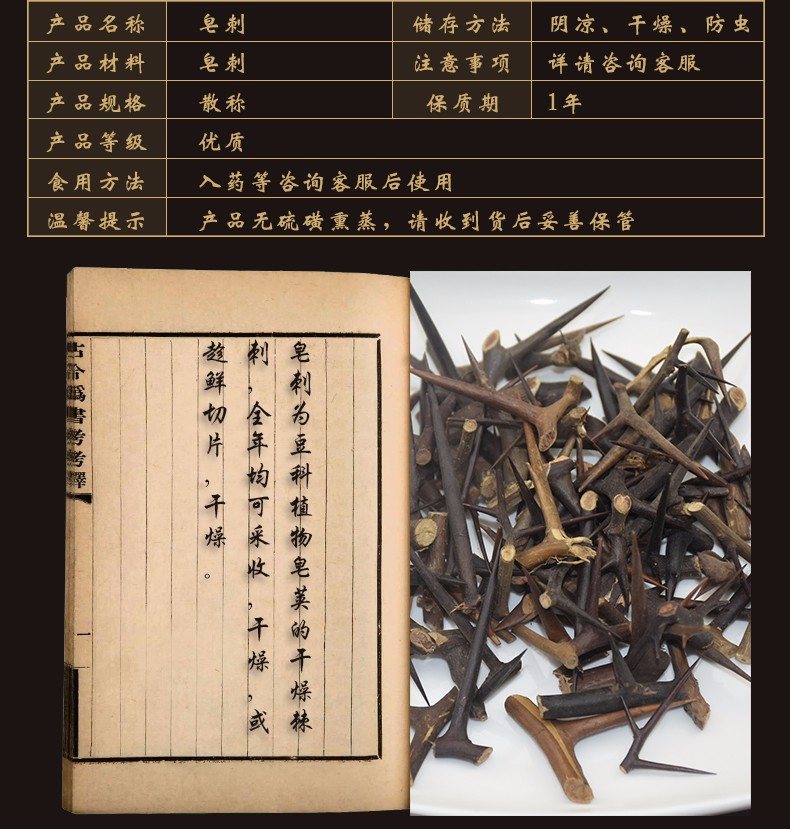 产品名称 皂刺 储存方法 阴凉、干燥、防虫
产品材料 皂刺 注意事项 详请咨询客服
产品规格 散称 保质期 1年
产品等级 优质
食用方法 入药等咨询客服后使用
温馨提示 产品无硫磺熏蒸，请收到货后妥善保管
皂刺为豆科植物皂荚的干燥棘
刺，全年均可采收，干燥，或
趁鲜切片，干燥。
古今偽書考考釋
一